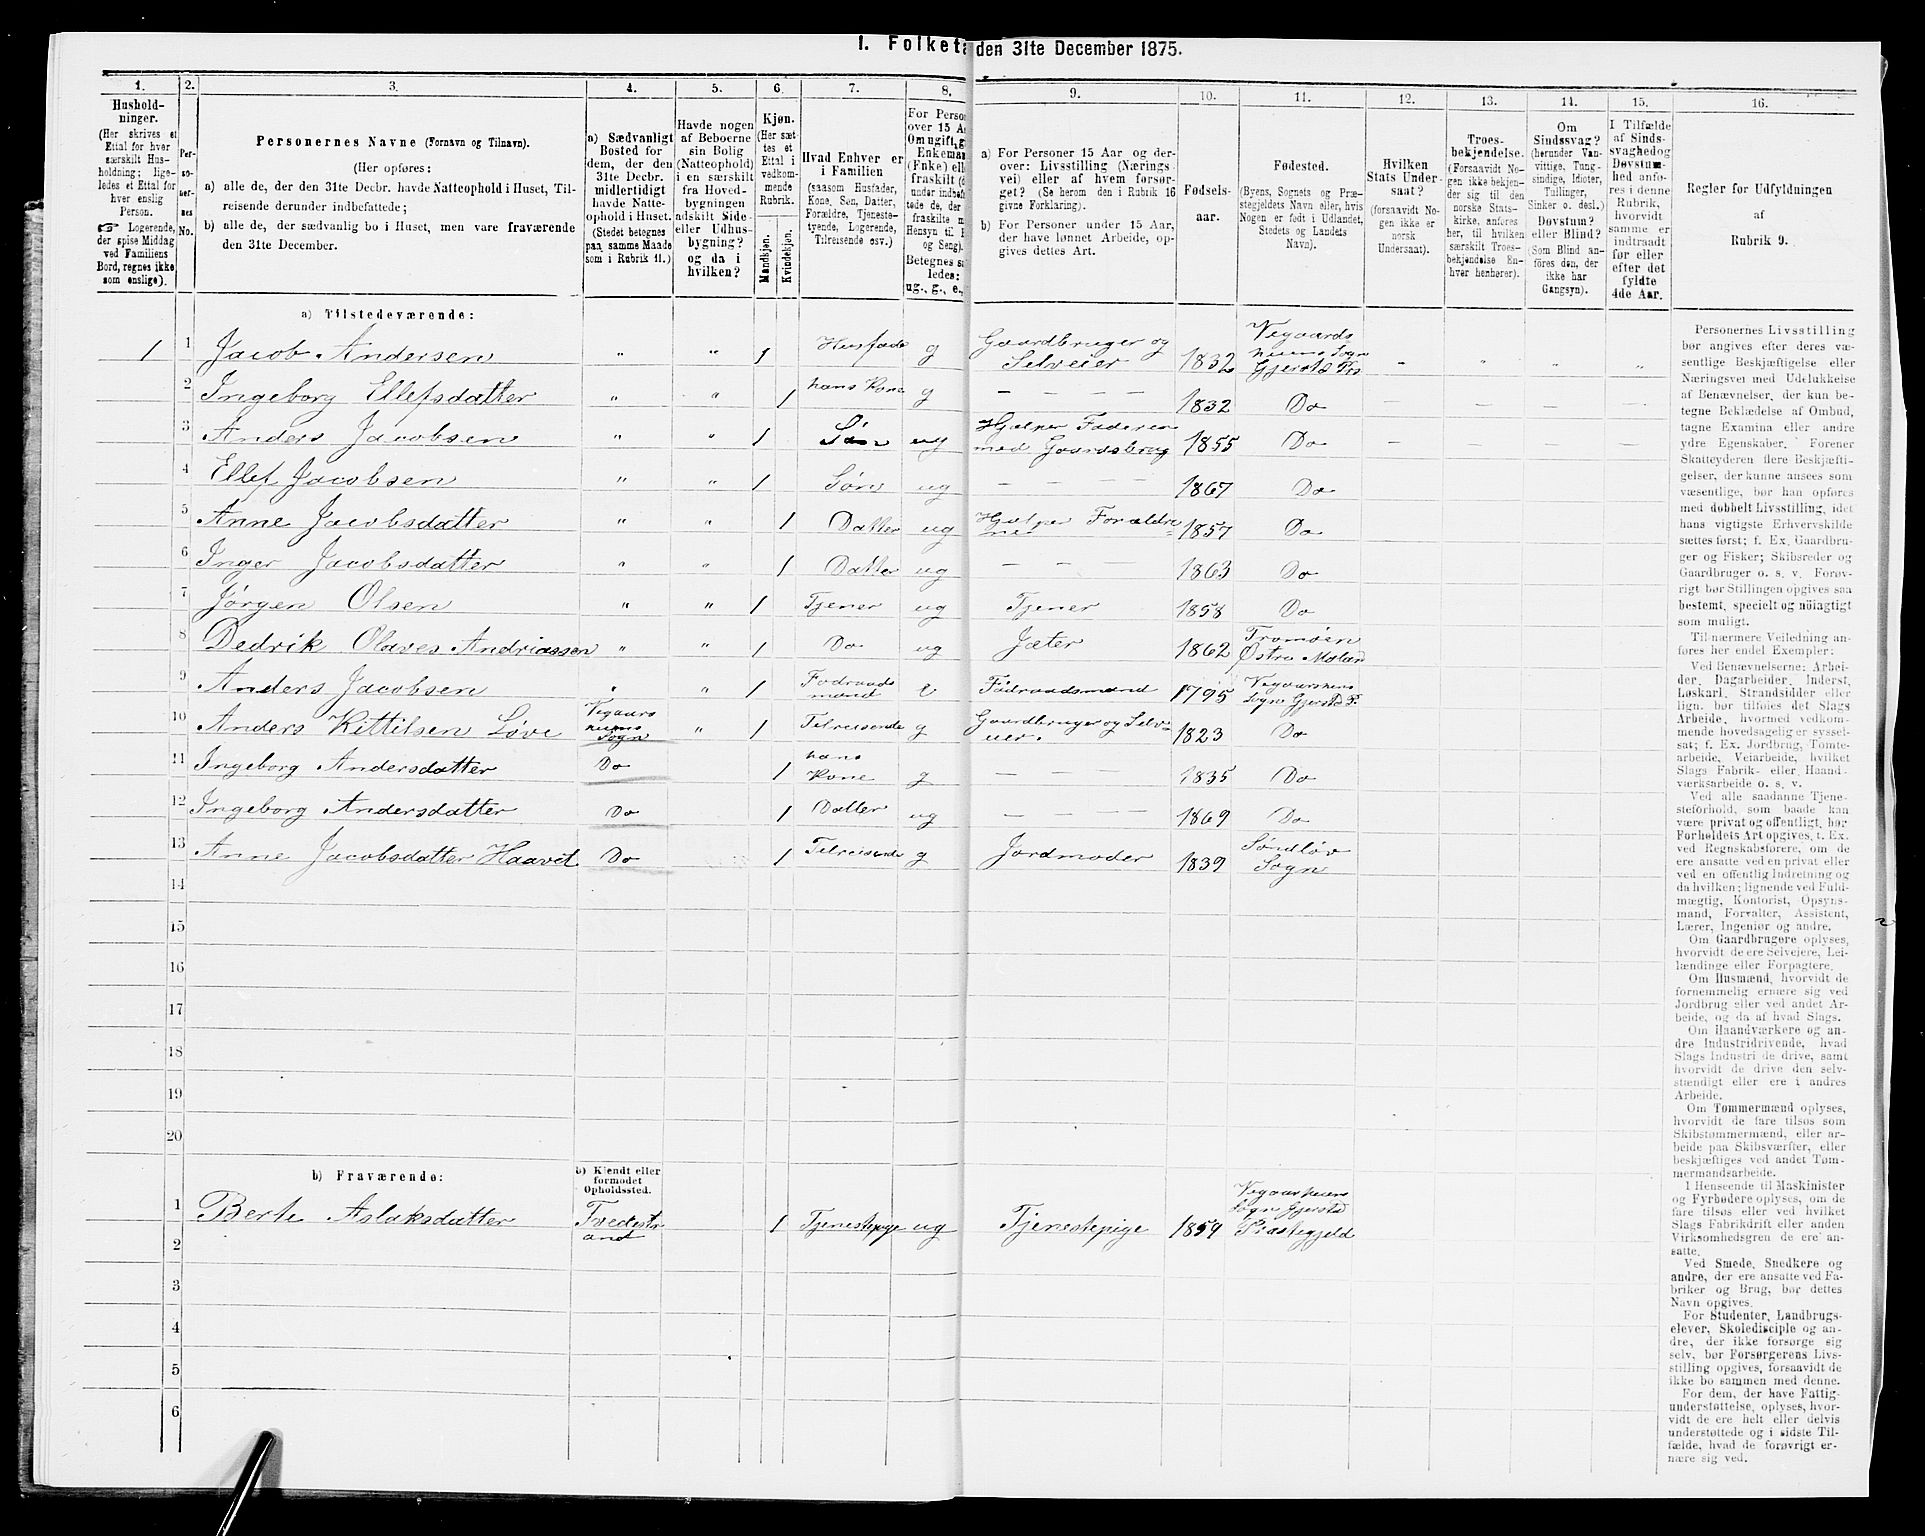 I. Folket den 31te December 1875.
1. 2. 3. 4. 5. 6. 7. 8. 9. 10. 11. 12. 13. 14. 15. 16.
Hushold-
ninger.
(Her skrives et
Ettal for hver
særskilt Hus-
holdning; lige-
ledes et Ettal for
hver enslig
Person.
☞ Logerende,
der spise Middag
ved Familiens
Bord, regnes ikke
som enslige).
Per-
so-
ner-
nes
No.
Personernes Navne (Fornavn og Tilnavn).
(Her opføres:
a) alle de, der den 31te Decbr. havde Natteophold i Huset, Til-
reisende derunder indbefattede;
b) alle de, der sædvanlig bo i Huset, men vare fraværende
den 31te December.
a) Sædvanligt
Bosted for
dem, der den
31te Decbr.
midlertidigt
havde Natte-
ophold i Huset.
(Stedet betegnes
paa samme Maade
som i Rubrik 11.)
Havde nogen
af Beboerne
sin Bolig
(Natteophold)
i en særskilt
fra Hoved-
bygningen
adskilt Side-
eller Udhus-
bygning?
og da i
hvilken?
Kjøn.
(Her sæt-
tes et
Ettal i
vedkom-
mende
Rubrik.
Mandkjøn. Kvindekjøn.
Hvad Enhver er
i Familien
(saasom Husfader,
Kone, Søn, Datter,
Forældre, Tjeneste-
tyende, Logerende,
Tilreisende osv.)
For Perso
over 15 Aa
Om ugift, g
Enkeman
(Enke) ell
fraskilt (d
under indbef
tede de, der
fraskilte m
Hensyn til B
og Seng).
Betegnes sa
ledes:
ug., g., e.,
a) For Personer 15 Aar og der-
over: Livsstilling (Nærings-
vei) eller af hvem forsør-
get? (Se herom den i Rubrik 16
givne Forklaring).
b) For Personer under 15 Aar,
der have lønnet Arbeide, op-
gives dettes Art.
Fødsels-
aar.
Fødested.
(Byens, Sognets og Præ-
stegjeldets Navn eller, hvis
Nogen er født i Udlandet,
Stedets og Landets
Navn).
Hvilken
Stats Under-
saat?
(forsaavidt No-
gen ikke er
norsk
Undersaat).
Troes-
bekjendelse.
(Forsaavidt No-
gen ikke bekjen-
der sig til den
norske Stats-
kirke, anføres
her, til hvilken
særskilt Troes-
bekjendelse En-
hver henhører).
Om
Sindssvag?
(herunder Van-
vittige, Tung-
sindige, Idioter,
Tullinger,
Sinker o. desl.)
Døvstum?
eller Blind?
(Som Blind an-
føres den, der
ikke har
Gangsyn).
I Tilfælde
af Sinds-
svaghed og
Døvstum-
hed anfø-
res i denne
Rubrik,
hvorvidt
samme er
indtraadt
før eller
efter det
fyldte
4de Aar.
Regler for Udfyldningen
af
Rubrik 9.
a) Tilstedeværende:
1 1 Jacob Andersen " " 1 Husfade g Gaardbruger og Selveier 1832 Vegaards heiens Sogn Gjerstd Prs - " " "
2 Ingeborg Ellefsdatter " " 1 hans Kone g - - - - 1832 Do - - - -
3 Anders Jacobsen " " 1 Søn ug Hjælper Faderen med Gaardsbrug 1855 Do - - - -
4 Ellef Jacobsen " " 1 Søn ug - - - - 1867 Do
5 Anne Jacobsdatter " " 1 Datter ug Hjælper Forældre ne 1857 Do
6 Inger Jacobsdatter " " 1 Datter ug - - 1863 Do
7 Jørgen Olsen " " 1 Tjener ug Tjener 1858 Do
8 Dedrik Olaves Andriassen " " 1 Do ug Jæter 1862 Tromøen Østre Moland
9 Anders Jacobsen " " 1 Fødraads mand e Fødraadsmand 1795 Vegaarsheiens Sogn Gjerstd P.
10 Anders Kittilsen Løve Vegaars heiens Sogn " 1 Tilreisende g Gaardbruger og Selv= eier. 1823 Do
11 Ingeborg Andersdatter Do 1 hans Kone g - - - 1835 Do
12 Ingeborg Andersdatter Do 1 Datter ug - - - 1869 Do
13 Anne Jacobsdatter Haavet Do 1 Tilreisende g Jordmoder 1839 Søndløv Sogn
14
15
16
17
18
19
20
b) Fraværende:
b) Kjendt eller
formodet
Opholdssted.
1 Berte Aslaksdatter Tvedestr and 1 Tjenestepige ug Tjenestepige 1859 Vegaarsheiens Sogn Gjerstd Præstegjeld
2
3
4
5
6
Personernes Livsstilling
bør angives efter deres væ-
sentlige Beskjæftigelse eller
Næringsvei med Udelukkelse
af Benævnelser, der kun be-
tegne Beklædelse af Ombud,
tagne Examina eller andre
ydre Egenskaber. Forener
Skatteyderen flere Beskjæfti-
gelser, der kunne ansees som
væsentlige, bør han opføres
med dobbelt Livsstilling, idet
hans vigtigste Erhvervskilde
sættes først; f. Ex. Gaardbru-
ger og Fisker; Skibsreder og
Gaardbruger o. s. v. Forøv-
rigt bør Stillingen opgives saa
bestemt, specielt og nøiagtigt
som muligt.
Til nærmere Veiledning an-
føres her endel Exempler:
Ved Benævnelserne: Arbei-
der, Dagarbeider, Inderst,
Løskarl, Strandsidder eller
lign. bør tilføies det Slags
Arbeide, hvormed vedkom-
mende hovedsagelig er syssel-
sat; f. Ex. Jordbrug, Tomte-
arbeide, Veiarbeide, hvilket
Slags Fabrik- eller Haand-
værksarbeide o. s. v.
Ved alle saadanne Tjene-
steforhold, som baade kan
være privat og offentligt, bør
Forholdets Art opgives, t. Ex.
ved Regnskabsførere, om de
ere ansatte ved en privat eller
ved en offentlig Indretning og
da hvilken; lignende ved Fuld-
mægtig, Kontorist, Opsyns-
mand, Forvalter, Assistent,
Lærer, Ingeniør og andre.
Om Gaardbrugere oplyses,
hvorvidt de ere Selveiere, Lei-
lændinge eller Forpagtere.
Om Husmænd, hvorvidt de
fornemmelig ernære sig ved
Jordbrug eller ved andet Ar-
beide, og da af hvad Slags.
Om Haandværkere og an-
dre Industridrivende, hvad
Slags Industri de drive, samt
hvorvidt de drive den selv-
stændigt eller ere i andres
Arbeide.
Om Tømmermænd oplyses,
hvorvidt de fare tilsøs som
Skibstømmermænd, eller ar-
beide paa Skibsværfter, eller
beskjæftiges ved andet Tøm-
mermandsarbeide.
I Henseende til Maskinister
og Fyrbødere oplyses, om de
fare tilsøs eller ved hvilket
Slags Fabrikdrift eller anden
Virksomhedsgren de ere an-
satte.
Ved Smede, Snedkere og
andre, der ere ansatte ved Fa-
briker og Brug, bør dettes
Navn opgives.
For Studenter, Landbrugs-
elever, Skoledisciple og an-
dre, der ikke forsørge sig
selv, bør Forsørgerens Livs-
stilling opgives, forsaavidt de
ikke bo sammen med denne.
For dem, der have Fattig-
understøttelse, oplyses, hvor-
vidt de ere helt eller delvis
understøttede og i sidste Til-
fælde, hvad de forøvrigt er-
nære sig ved.